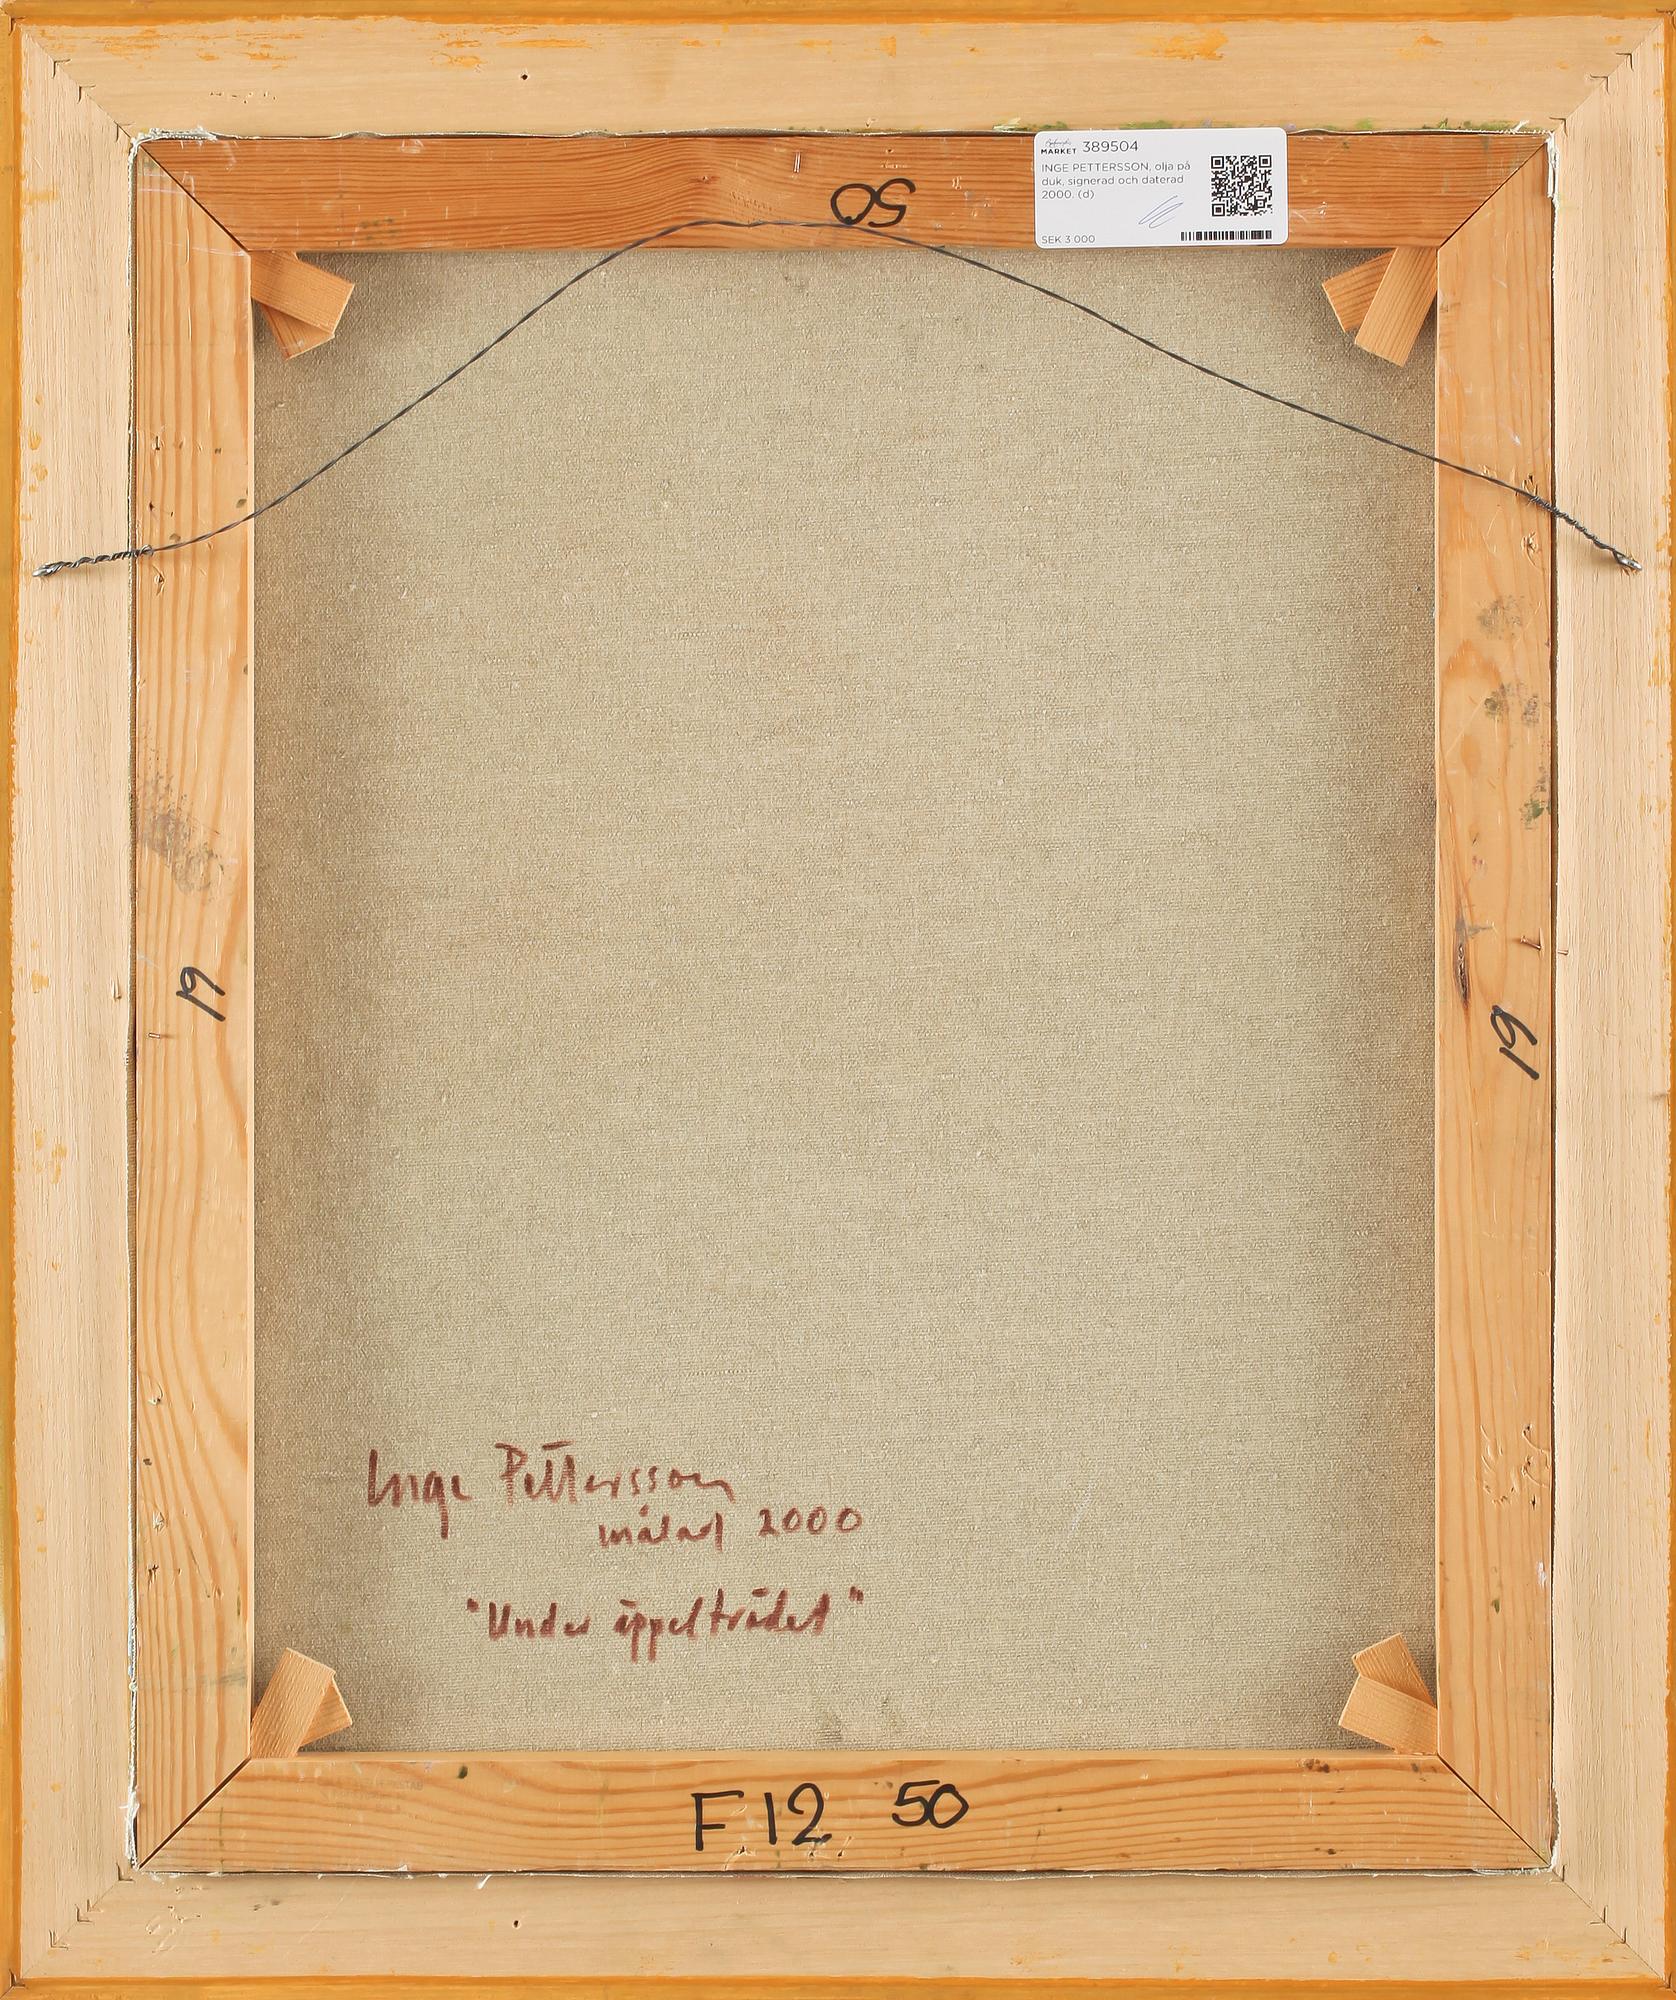 50
MARKET 389504
INGE PETTERSSON, olja på
duk, signerad och daterad
2000. (d)
SEK 3 000
19
19
Inge Pettersson
målad 2000
"Under äppelträdet"
F12 50